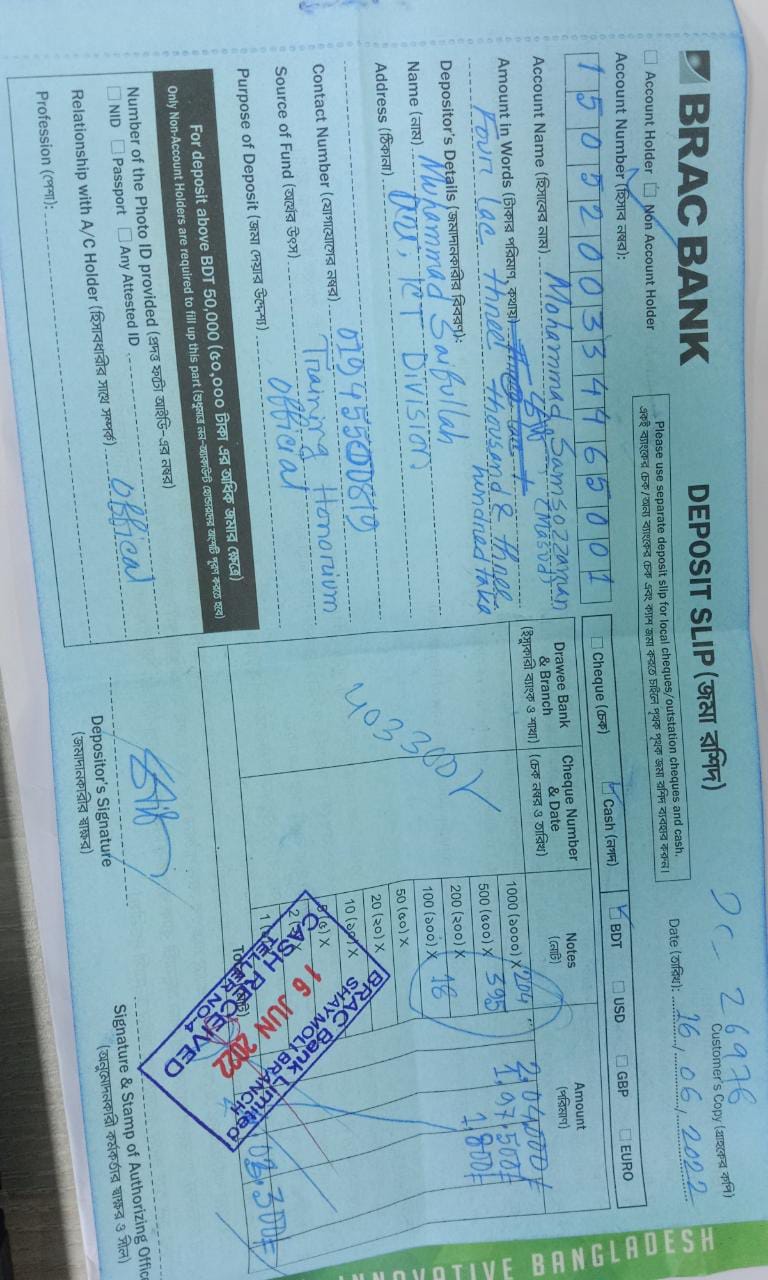 BRAC BANK
DEPOSIT SLIP (জমা রশিদ)
26976
Customer's Copy (গ্রাহকের কপি)
Please use separate deposit slip for local cheques/outstation cheques and cash.
একই ব্যাংকের চেক/অন্য ব্যাংকের চেক এবং ক্যাশ জমা করতে চাইলে পৃথক পৃথক জমা রশিদ ব্যবহার করুন।
Date (তারিখ): 16/06/2022
Account Holder Non Account Holder
Account Number (হিসাব নম্বর):
1505200334465001
Cheque (চেক) Cash (নগদ) BDT USD GBP EURO
Account Name (হিসাবের নাম) Mohammad Samsozzaman
(Masud)
Amount in Words (টাকার পরিমাণ, কথায়)
Four lac three thousand & three
hundred taka
Depositor's Details (জমাদানকারীর বিবরণ):
Name (নাম) Muhammad Saifullah
Address (ঠিকানা) ICT Division
Contact Number (যোগাযোগের নম্বর) 01945500819
Source of Fund (অর্থের উৎস) Training Honorium
Purpose of Deposit (জমা দেয়ার উদ্দেশ্য) Official
For deposit above BDT 50,000 (৫০,০০০ টাকা এর অধিক জমার ক্ষেত্রে)
Only Non-Account Holders are required to fill up this part (শুধুমাত্র নন-অ্যাকাউন্ট হোল্ডারদের অংশটি পূরণ করতে হবে)
Number of the Photo ID provided (প্রদত্ত ফটো আইডি-এর নম্বর)
NID Passport Any Attested ID
Relationship with A/C Holder (হিসাবধারীর সাথে সম্পর্ক) Offical
Profession (পেশা):
Drawee Bank & Branch (ইস্যুকারী ব্যাংক ও শাখা)
Cheque Number & Date (চেক নম্বর ও তারিখ)
Notes (নোট)
Amount (পরিমাণ)
1000 (১০০০) X 204 2,04,000/
500 (৫০০) X 395 1,97,500/
200 (২০০) X
100 (১০০) X 18 1,800/
50 (৫০) X
20 (২০) X
10 (১০) X
403300
BRAC Bank Limited
SHAYMOLI BRANCH
16 JUN 2022
CASH RECEIVED
TELLER NO.4
Depositor's Signature
(জমাদানকারীর স্বাক্ষর)
Signature & Stamp of Authorizing Office
(অনুমোদনকারী কর্মকর্তার স্বাক্ষর ও সীল)
INNOVATIVE BANGLADESH